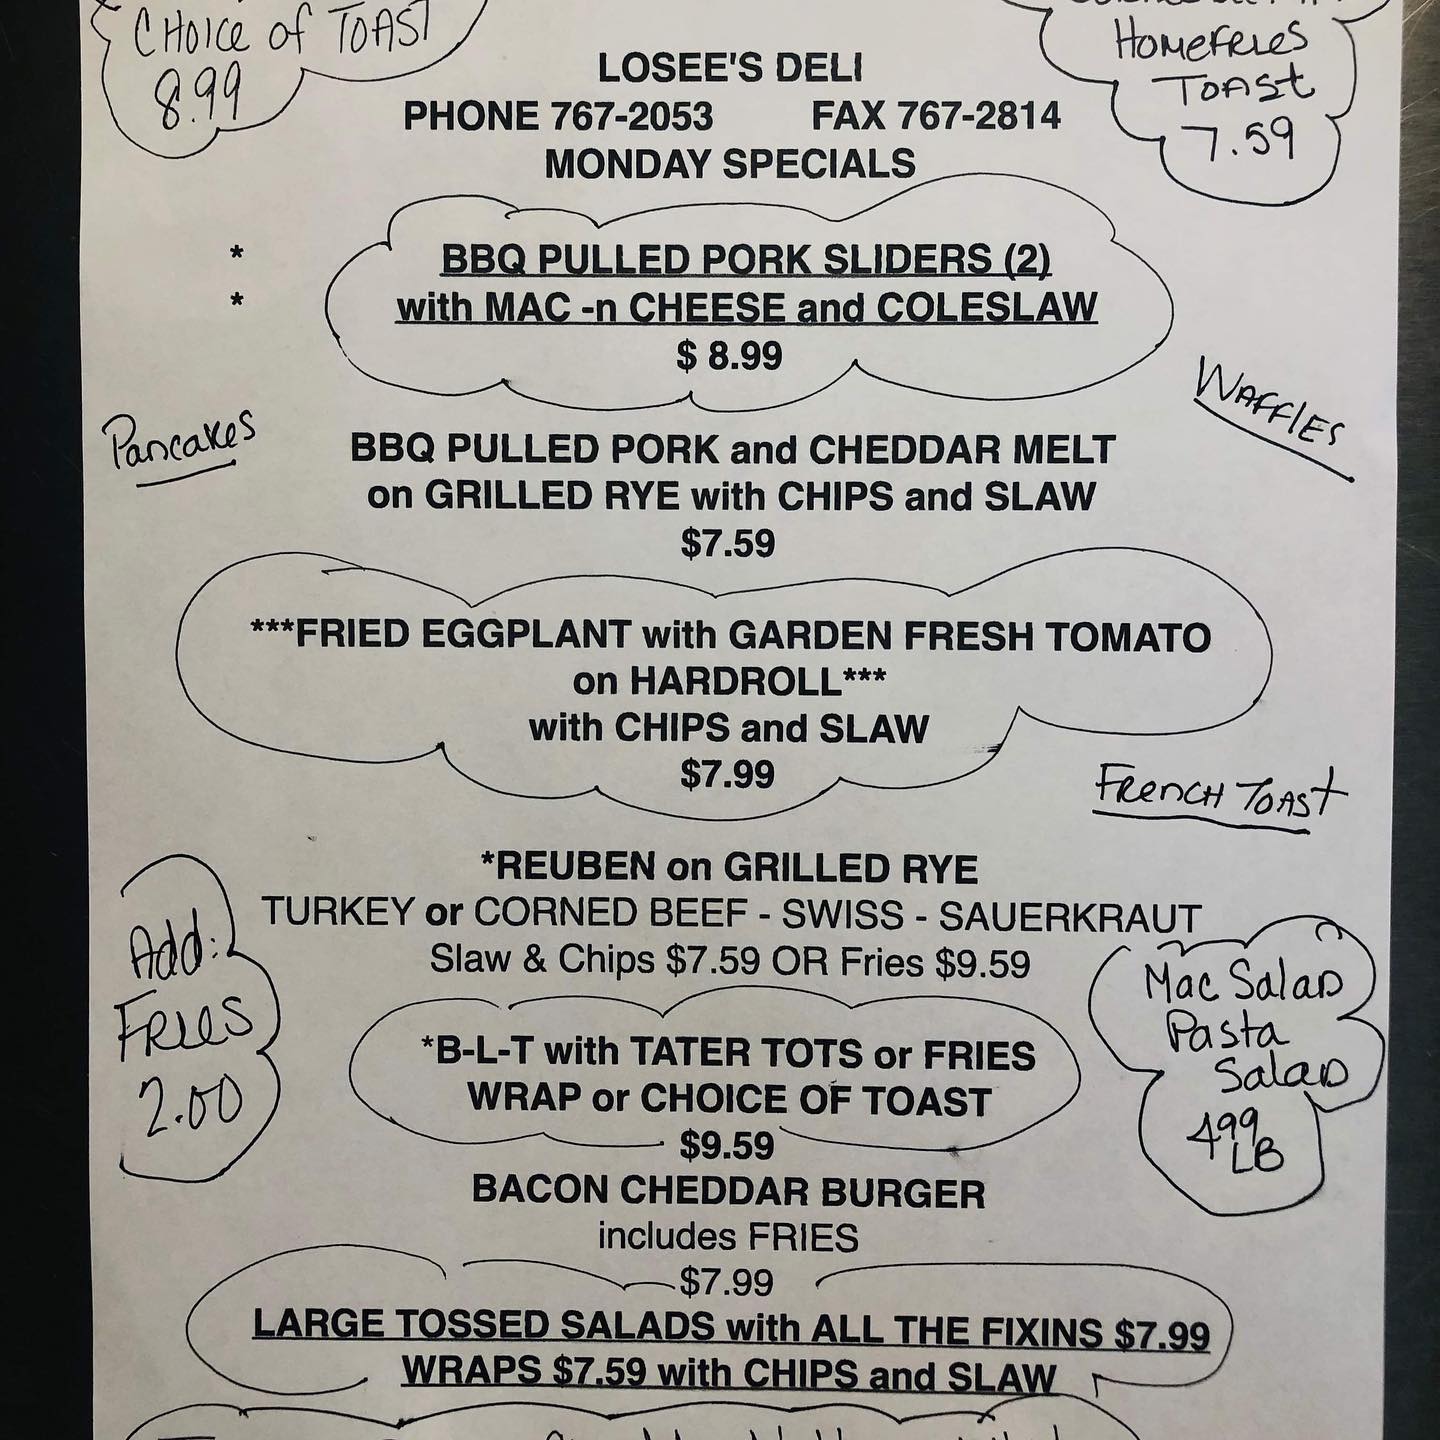 CHOICE of TOAST
8.99
HOMEFRIES
TOAST
7.59
LOSEE'S DELI
PHONE 767-2053 FAX 767-2814
MONDAY SPECIALS
*
BBQ PULLED PORK SLIDERS (2)
*
with MAC -n CHEESE and COLESLAW
$ 8.99
Pancakes
WAFFLES
BBQ PULLED PORK and CHEDDAR MELT
on GRILLED RYE with CHIPS and SLAW
$7.59
***FRIED EGGPLANT with GARDEN FRESH TOMATO
on HARDROLL***
with CHIPS and SLAW
$7.99
FRENCH TOAST
*REUBEN on GRILLED RYE
TURKEY or CORNED BEEF - SWISS - SAUERKRAUT
Slaw & Chips $7.59 OR Fries $9.59
Add:
FRIES
2.00
Mac Salad
Pasta
Salad
499
LB
*B-L-T with TATER TOTS or FRIES
WRAP or CHOICE OF TOAST
$9.59
BACON CHEDDAR BURGER
includes FRIES
$7.99
LARGE TOSSED SALADS with ALL THE FIXINS $7.99
WRAPS $7.59 with CHIPS and SLAW